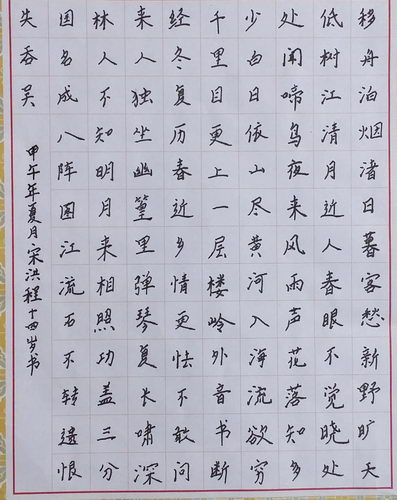 移舟泊烟渚日暮客愁新野旷天
低树江清月近人春眠不觉晓处
处闻啼鸟夜来风雨声花落知多
少白日依山尽黄河入海流欲穷
千里目更上一层楼岭外音书断
经冬复历春近乡情更怯不敢问
来人独坐幽篁里弹琴复长啸深
林人不知明月来相照功盖三分
国名成八阵图江流石不转遗恨
失吞吴
甲午年夏月宋洪程十四岁书